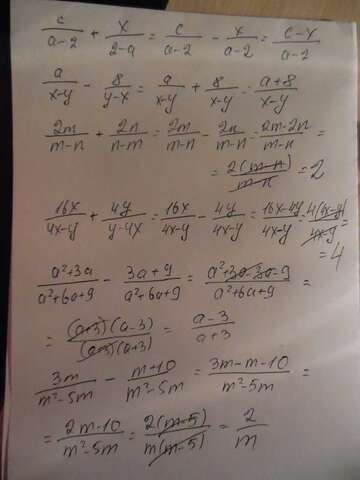 c/(a-2) + x/(2-a) = c/(a-2) - x/(a-2) = (c-x)/(a-2)
a/(x-y) - 8/(y-x) = a/(x-y) + 8/(x-y) = (a+8)/(x-y)
2m/(m-n) + 2n/(n-m) = 2m/(m-n) - 2n/(m-n) = (2m-2n)/(m-n) =
= 2(m-n)/(m-n) = 2
16x/(4x-y) + 4y/(y-4x) = 16x/(4x-y) - 4y/(4x-y) = (16x-4y)/(4x-y) = 4(4x-y)/(4x-y) =
= 4
(a²+3a)/(a²+6a+9) - (3a+9)/(a²+6a+9) = (a²+3a-3a-9)/(a²+6a+9) =
= (a+3)(a-3)/(a+3)(a+3) = (a-3)/(a+3)
3m/(m²-5m) - (m+10)/(m²-5m) = (3m-m-10)/(m²-5m) =
= (2m-10)/(m²-5m) = 2(m-5)/m(m-5) = 2/m